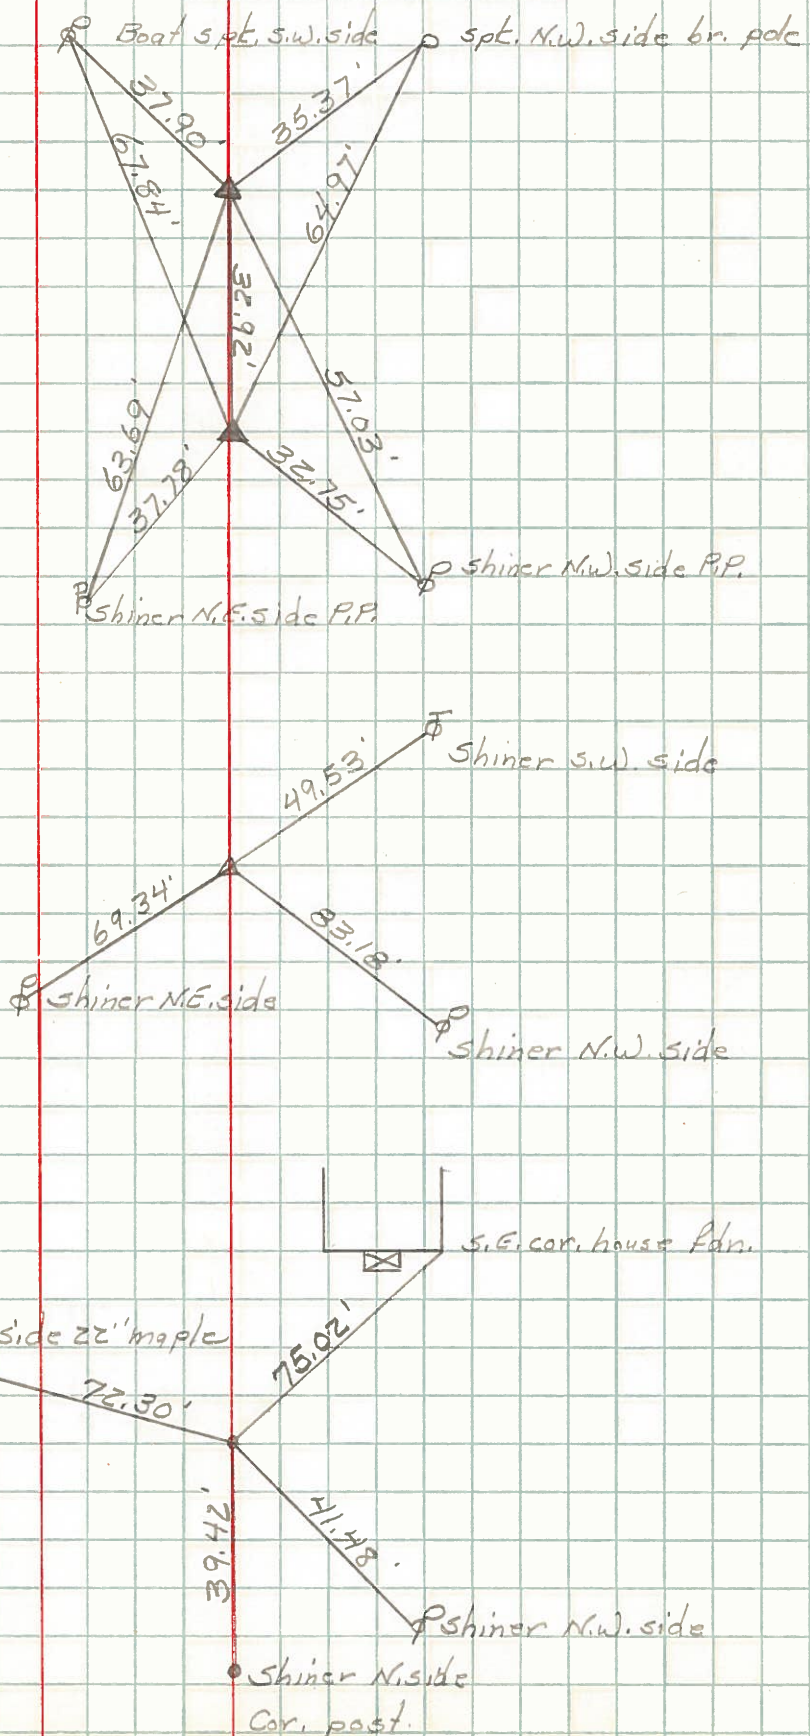 Boat spt. s.w. side
spt. N.W. side br. pole
37.90'
35.37'
67.84'
64.97'
32.92'
63.69'
57.03'
37.78'
32.75'
shiner N.W. side P.P.
shiner N.E. side P.P.
shiner s.w. side
49.53'
69.34'
83.18'
shiner N.E. side
shiner N.W. side
S.E. cor. house fdn.
side 22" maple
75.02'
72.30'
39.42'
41.48'
shiner N.W. side
shiner N. side
Cor. post.